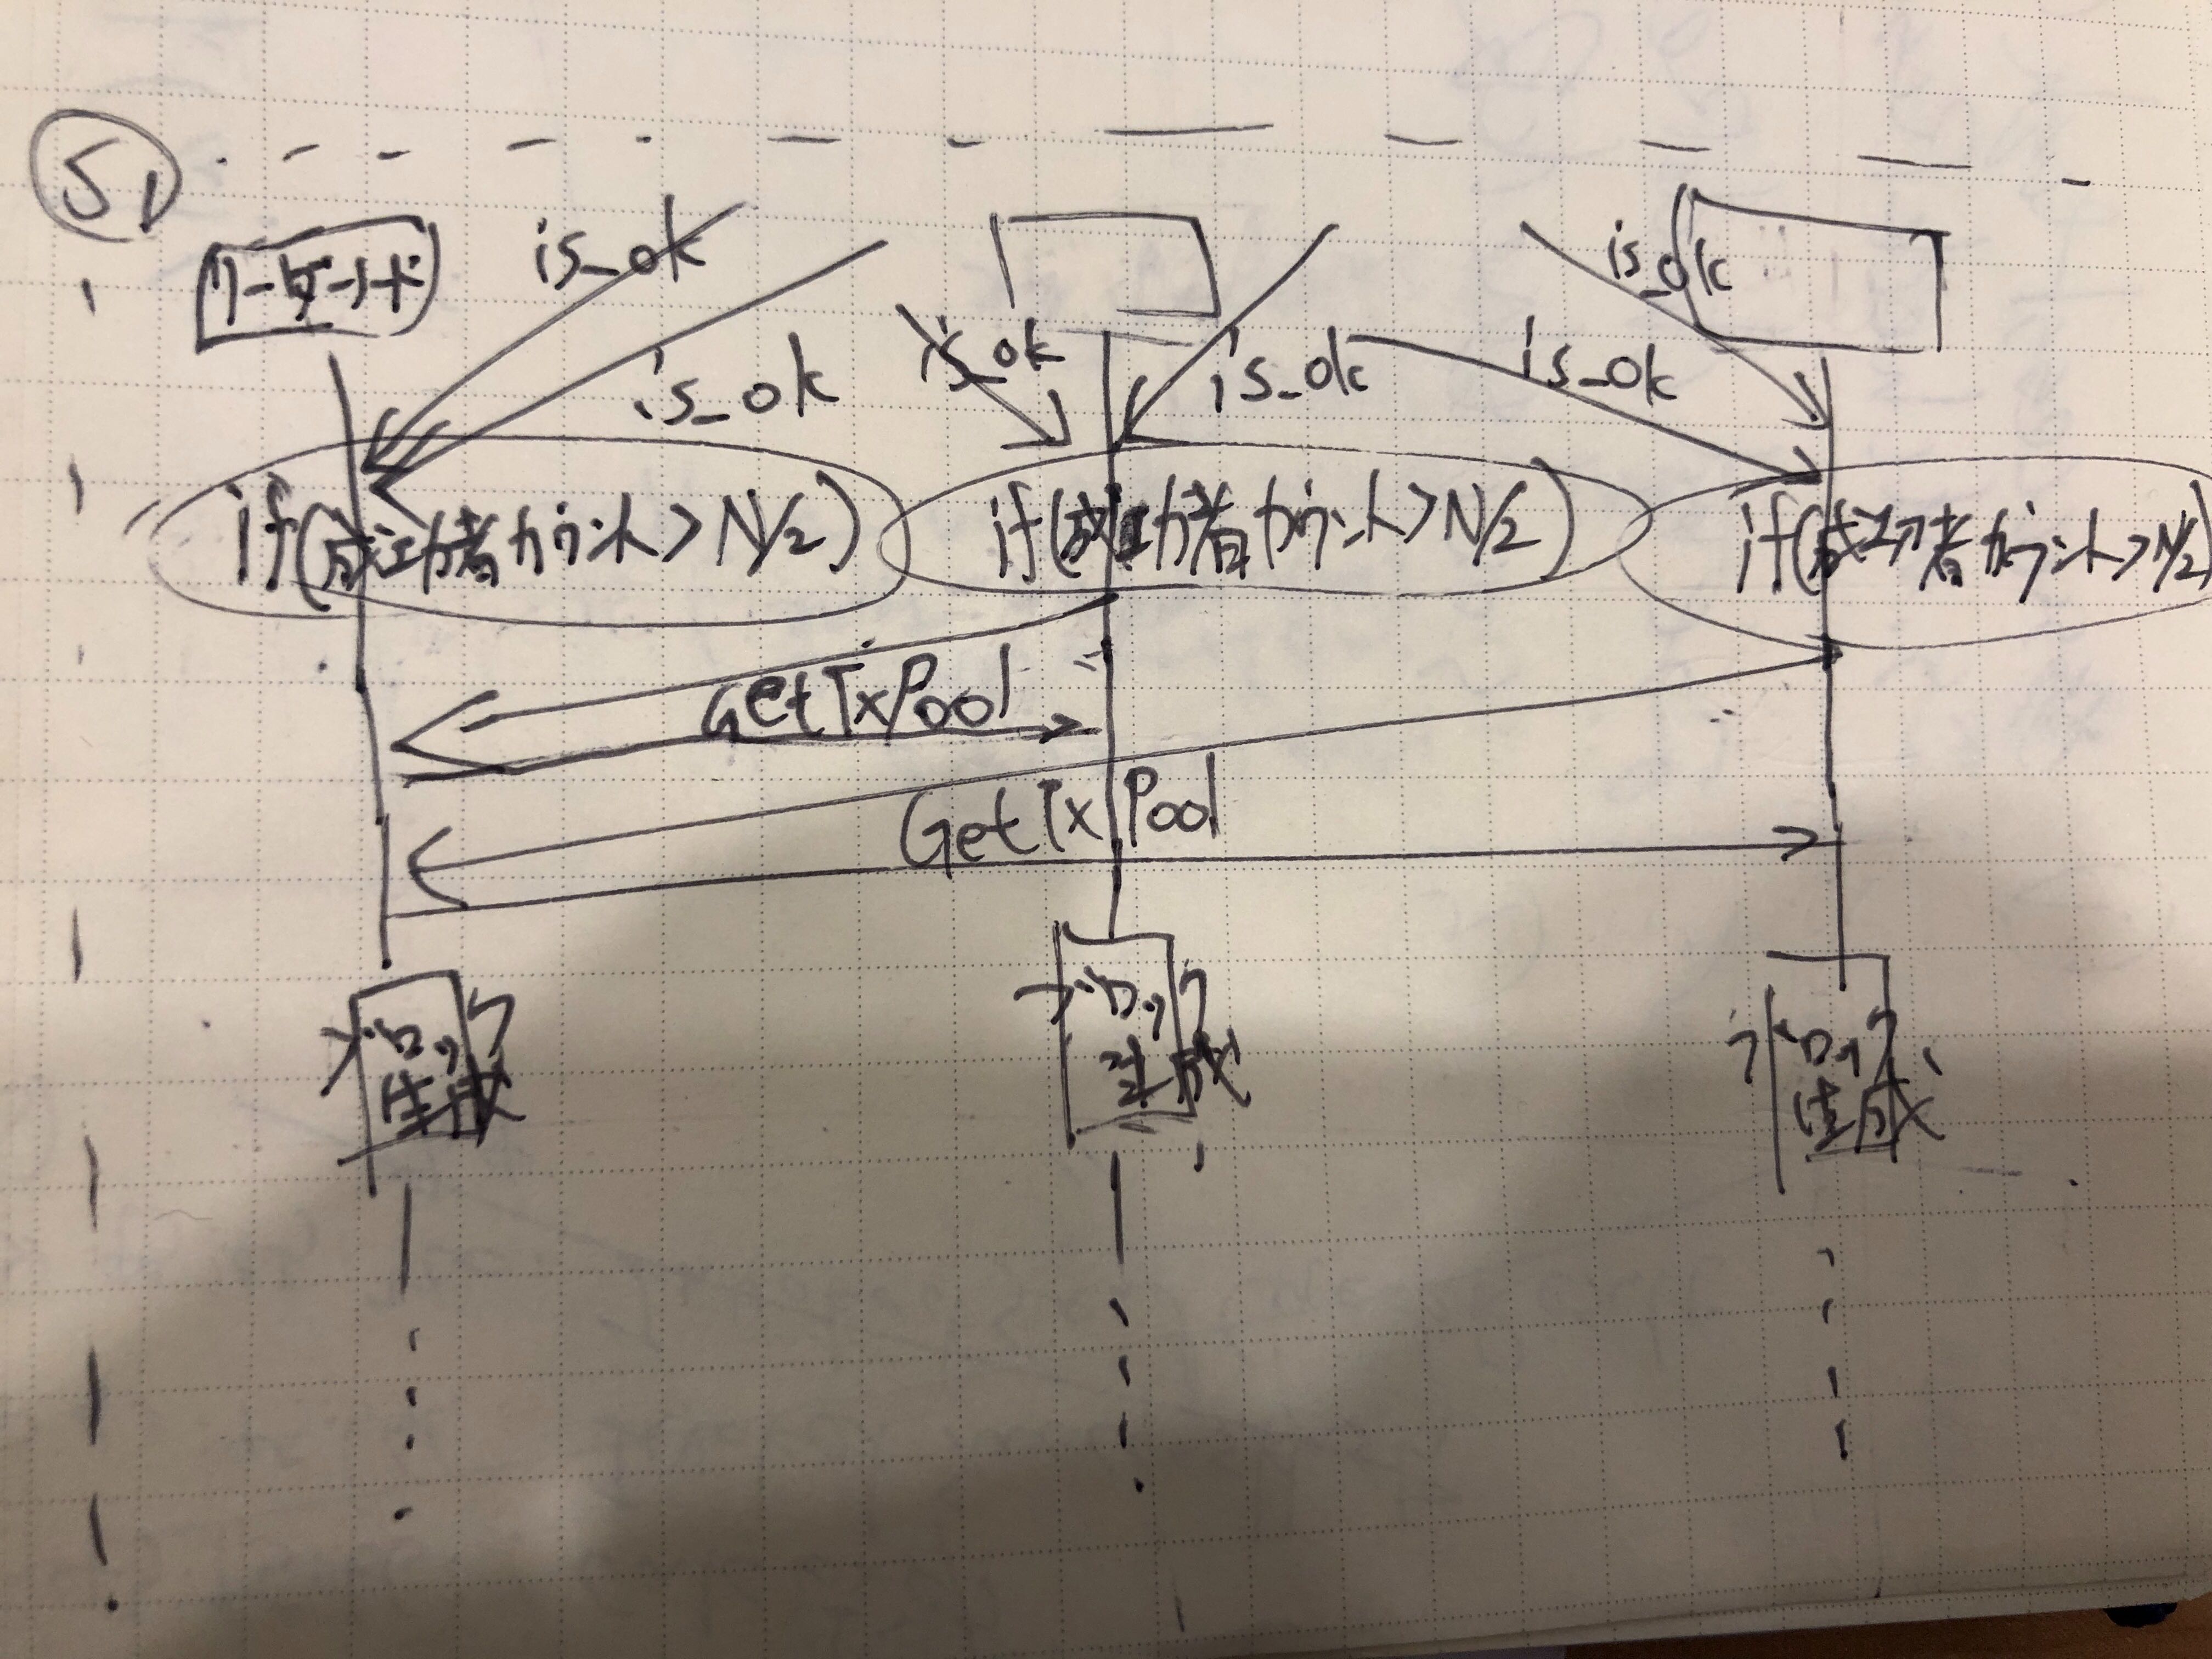 S1
リーダーノード
is_ok
is_ok
is_ok
is_ok
is_ok
is_ok
if(成功者カウント>N/2)
if(成功者カウント>N/2)
if(成功者カウント>N/2)
GetTxPool
GetTxPool
ブロック
生成
ブロック
生成
ブロック
生成